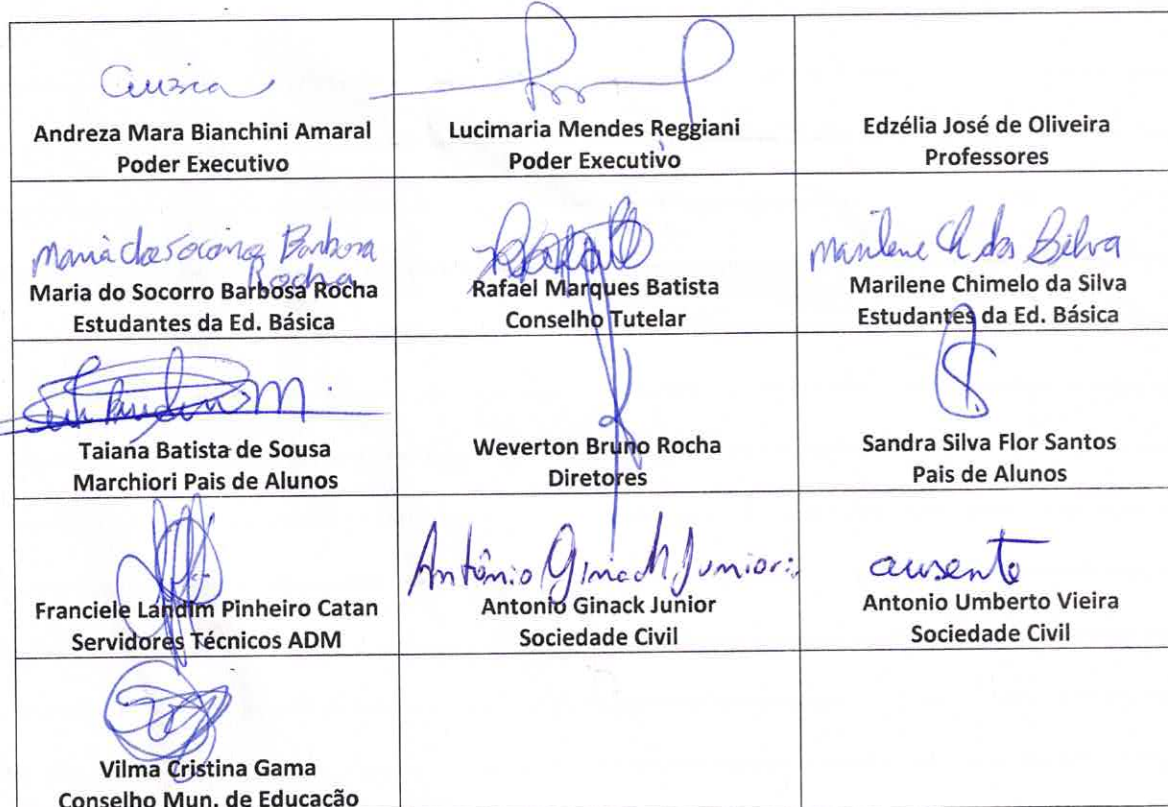 Andreza Mara Bianchini Amaral
Poder Executivo
Lucimaria Mendes Reggiani
Poder Executivo
Edzélia José de Oliveira
Professores
Maria do Socorro Barbosa
Rocha
Maria do Socorro Barbosa Rocha
Estudantes da Ed. Básica
Rafael Marques Batista
Conselho Tutelar
Marilene Ch da Silva
Marilene Chimelo da Silva
Estudantes da Ed. Básica
Taiana Batista de Sousa
Marchiori Pais de Alunos
Weverton Bruno Rocha
Diretores
Sandra Silva Flor Santos
Pais de Alunos
Franciele Landim Pinheiro Catan
Servidores Técnicos ADM
Antônio Ginack Junior
Antonio Ginack Junior
Sociedade Civil
ausente
Antonio Umberto Vieira
Sociedade Civil
Vilma Cristina Gama
Conselho Mun. de Educação